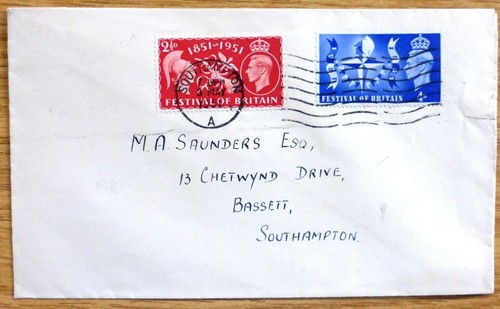 2½D
1851-1951
FESTIVAL OF BRITAIN
FESTIVAL OF BRITAIN
4D
SOUTHAMPTON
3 MAY
A
M.A. SAUNDERS ESQ,
13 CHETWYND DRIVE,
BASSETT,
SOUTHAMPTON.